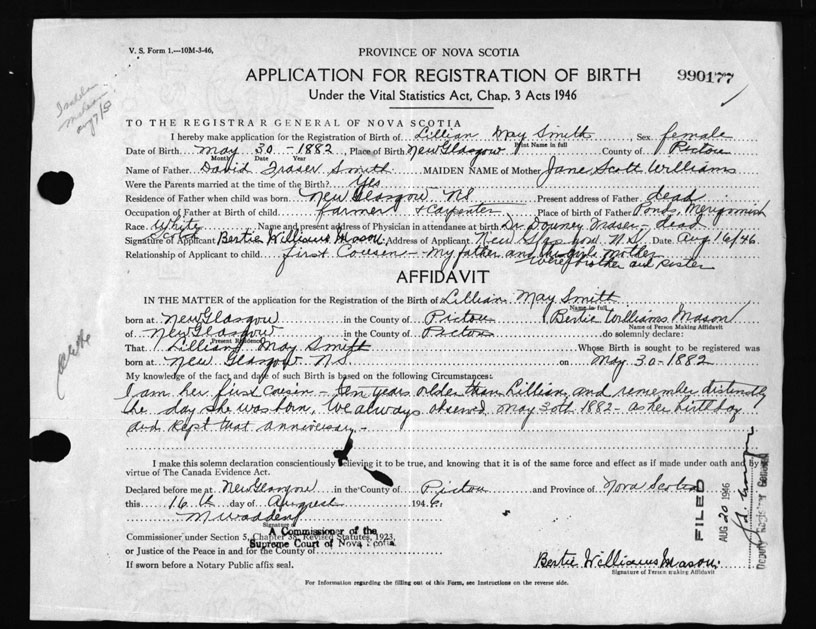 V. S. Form 1.—10M-3-46,
PROVINCE OF NOVA SCOTIA
APPLICATION FOR REGISTRATION OF BIRTH
990177
Under the Vital Statistics Act, Chap. 3 Acts 1946
TO THE REGISTRAR GENERAL OF NOVA SCOTIA
I hereby make application for the Registration of Birth of Lillian May Smith, Sex female
Print Name in full
Date of Birth May 30 - 1882, Place of Birth New Glasgow County of Pictou
Month Date Year
Name of Father David Fraser Smith MAIDEN NAME of Mother Jane Scott Williams
Were the Parents married at the time of the Birth? Yes
Residence of Father when child was born New Glasgow N.S. Present address of Father dead
Occupation of Father at Birth of child farmer + Carpenter Place of birth of Father Ponds, Merigomish
Race White Scotch Name and present address of Physician in attendance at birth Dr. Downey Fraser - dead
Signature of Applicant Bertie Williams Mason Address of Applicant New Glasgow N.S. Date Aug 16/46
Relationship of Applicant to child first Cousin - My father and this girl's mother
were brother and sister
AFFIDAVIT
IN THE MATTER of the application for the Registration of the Birth of Lillian May Smith
Name in full
born at New Glasgow in the County of Pictou Bertie Williams Mason
Name of Person Making Affidavit
of New Glasgow in the County of Pictou do solemnly declare:
Present Residence
That Lillian May Smith Whose Birth is sought to be registered was
born at New Glasgow N.S. on May 30 - 1882
My knowledge of the fact and date of such Birth is based on the following Circumstances:
I am her first Cousin - ten years older than Lillian, and remember distinctly
the day she was born, We always observed May 30th 1882 - as her birthday
and kept that anniversary -
I make this solemn declaration conscientiously believing it to be true, and knowing that it is of the same force and effect as if made under oath and by
virtue of The Canada Evidence Act.
Declared before me at New Glasgow in the County of Pictou and Province of Nova Scotia
this 16th day of August 1946.
Signature of
A Commissioner of the
Supreme Court of Nova Scotia
Commissioner under Section 5, Chapter 38, Revised Statutes, 1923,
or Justice of the Peace in and for the County of
If sworn before a Notary Public affix seal.
Bertie Williams Mason.
Signature of Person making Affidavit
For Information regarding the filling out of this Form, see Instructions on the reverse side.
FILED
AUG 20 1946
Deputy Registrar General